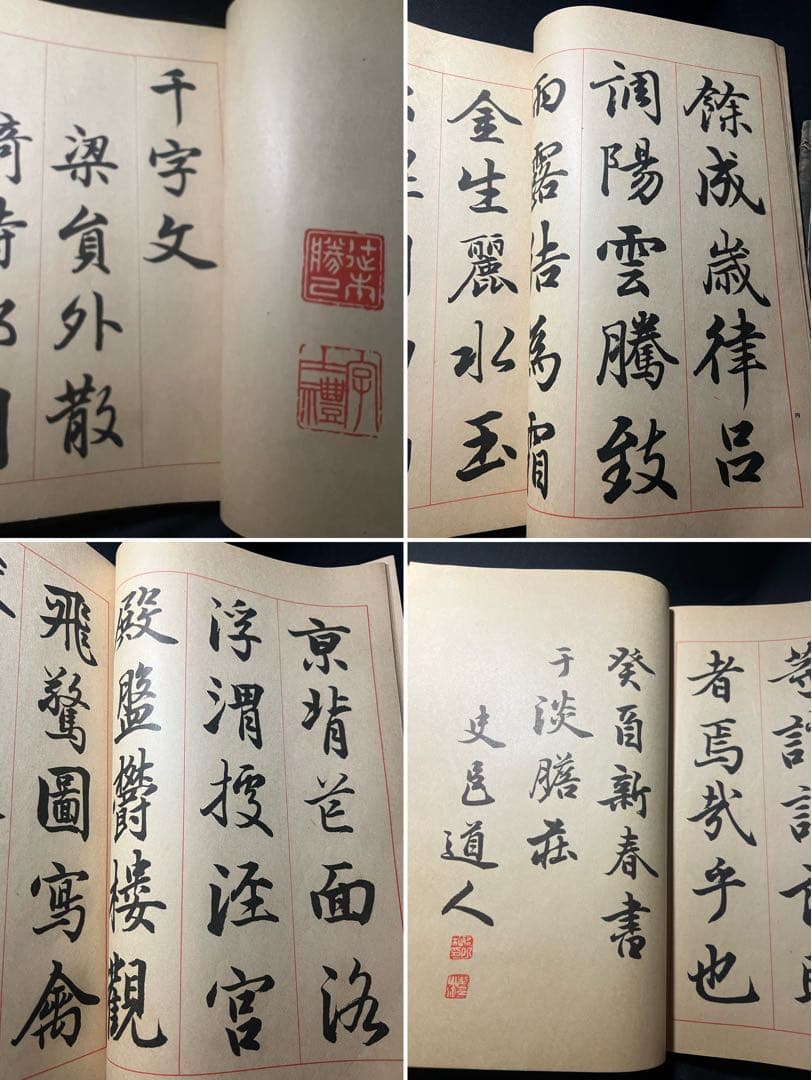 千字文
梁貟外散
辻本
勝己
餘成歲律呂
調陽雲騰致
雨露結為霜
金生麗水玉
亰背芒面洛
浮渭據涇宮
殿盤鬱樓觀
飛驚圖寫禽
者焉哉乎也
癸酉新春書
于淡膽荘
史邑道人